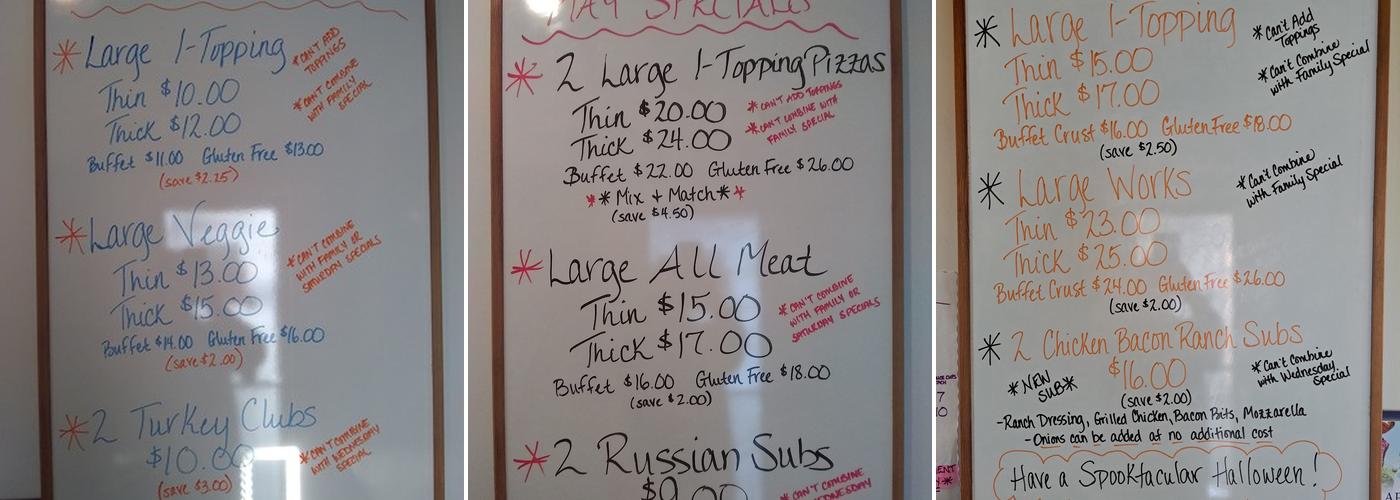 * Large 1-Topping
Thin $10.00
Thick $12.00
Buffet $11.00 Gluten Free $13.00
(save $2.25)
*CAN'T ADD
TOPPINGS
*CAN'T COMBINE
WITH FAMILY
SPECIAL
* Large Veggie
Thin $13.00
Thick $15.00
Buffet $14.00 Gluten Free $16.00
(save $2.00)
*CAN'T COMBINE
WITH FAMILY OR
SATURDAY SPECIALS
* 2 Turkey Clubs
$10.00
(save $3.00)
*CAN'T COMBINE
WITH WEDNESDAY
SPECIAL
MAY SPECIALS
* 2 Large 1-Topping Pizzas
Thin $20.00
Thick $24.00
Buffet $22.00 Gluten Free $26.00
**Mix + Match**
(save $4.50)
*CAN'T ADD TOPPINGS
*CAN'T COMBINE WITH
FAMILY SPECIAL
* Large All Meat
Thin $15.00
Thick $17.00
Buffet $16.00 Gluten Free $18.00
(save $2.00)
*CAN'T COMBINE
WITH FAMILY OR
SATURDAY SPECIALS
* 2 Russian Subs
$9.00
*CAN'T COMBINE
WEDNESDAY
* Large 1-Topping
Thin $15.00
Thick $17.00
Buffet Crust $16.00 Gluten Free $18.00
(save $2.50)
*Can't Add
Toppings
*Can't Combine
with Family Special
* Large Works
Thin $23.00
Thick $25.00
Buffet Crust $24.00 Gluten Free $26.00
(save $2.00)
*Can't Combine
with Family Special
* 2 Chicken Bacon Ranch Subs
$16.00
(save $2.00)
*NEW
SUB*
*Can't Combine
with Wednesday
Special
-Ranch Dressing, Grilled Chicken, Bacon Bits, Mozzarella
-Onions can be added at no additional cost
Have a Spooktacular Halloween!